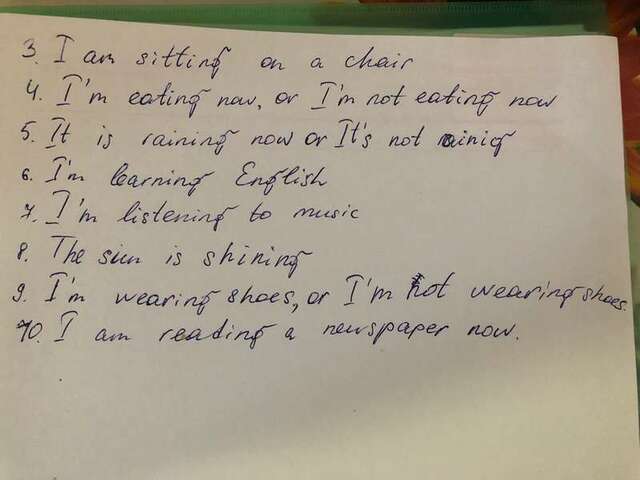 3. I am sitting on a chair
4. I'm eating now, or I'm not eating now
5. It is raining now or It's not rainig
6. I'm learning English
7. I'm listening to music
8. The sun is shining
9. I'm wearing shoes, or I'm not wearing shoes.
10. I am reading a newspaper now.